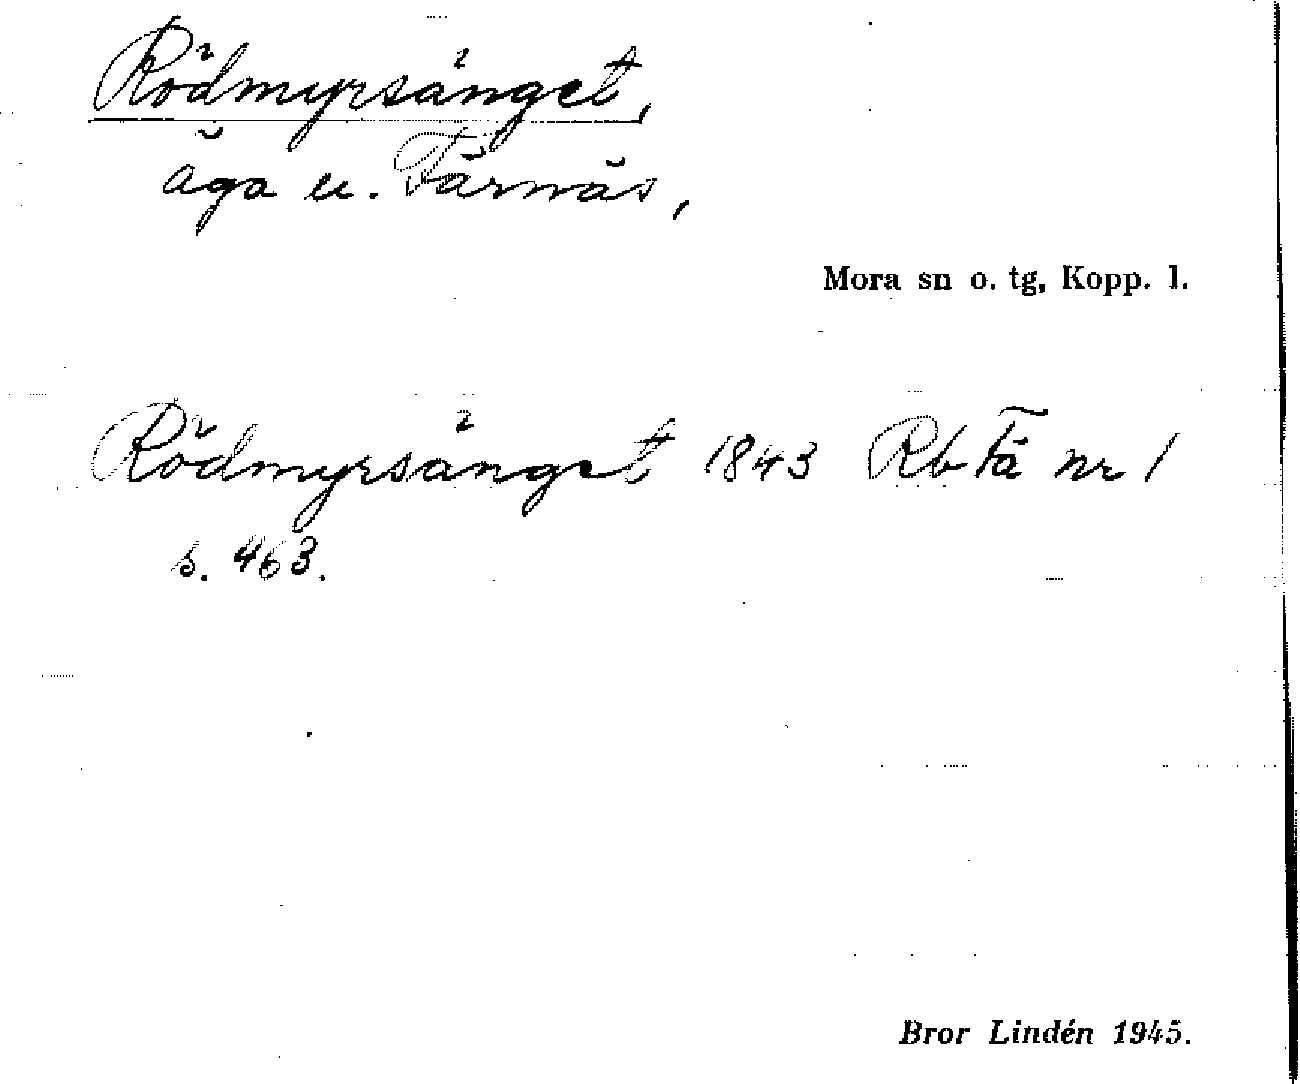 Rödmyrsänget,
äga u. Färnäs,
Mora sn o. tg, Kopp. l.
Rödmyrsänget 1843 Rb Fä nr 1
s. 463.
Bror Lindén 1945.